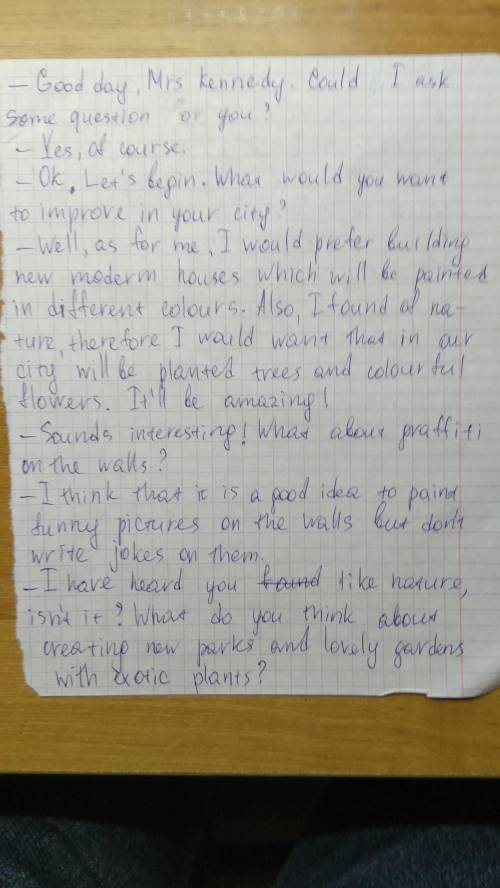 – Good day, Mrs Kennedy. Could I ask
some question of you?
– Yes, of course.
– Ok. Let's begin. What would you want
to improve in your city?
– Well, as for me, I would prefer building
new moderm houses which will be painted
in different colours. Also, I found of na-
ture, therefore I would want that in our
city will be planted trees and colourful
flowers. It'll be amazing!
– Sounds interesting! What about graffiti
on the walls?
– I think that it is a good idea to paint
funny pictures on the walls but don't
write jokes on them.
– I have heard you found like nature,
isn't it? What do you think about
creating new parks and lovely gardens
with exotic plants?